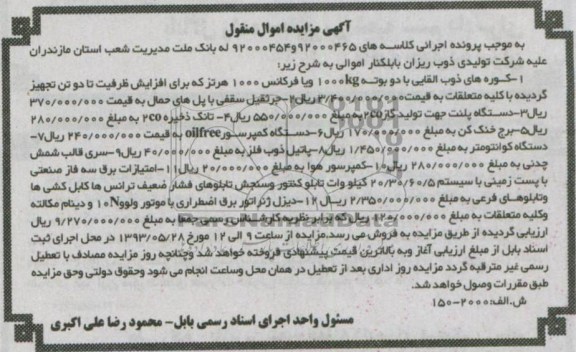 آگهی مزایده اموال منقول
به موجب پرونده اجرائی کلاسه های ۹۲۰۰۰۴۵۴و۹۲۰۰۰۴۶۵ له بانک ملت مدیریت شعب استان مازندران
علیه شرکت تولیدی ذوب ریزان بابلکنار اموالی به شرح زیر:
۱-کوره های ذوب القایی با دو بوته ۱۰۰۰kg ویا فرکانس ۱۰۰۰ هرتز که برای افزایش ظرفیت تا دو تن تجهیز
گردیده با کلیه متعلقات به قیمت ریال۲-جرثقیل سقفی با پل های حمال به قیمت ۳۷۰/۰۰۰/۰۰۰
ریال۳-دستگاه پلنت جهت تولید گاز co۲ به مبلغ ۵۵۰/۰۰۰/۰۰۰ ریال۴- تانک ذخیره co۲ به مبلغ ۲۸۰/۰۰۰/۰۰۰
ریال۵-برج خنک کن به مبلغ ۱۷۰/۰۰۰/۰۰۰ ریال۶-دستگاه کمپرسور oilfree به قیمت ۲۴۰/۰۰۰/۰۰۰ ریال۷-
دستگاه کوانتومتر به مبلغ ۱/۴۵۰/۰۰۰/۰۰۰ ریال۸-پاتیل ذوب فلز به مبلغ ۴۰/۰۰۰/۰۰۰ ریال۹-سری قالب شمش
چدنی به مبلغ ۲۸۰/۰۰۰/۰۰۰ ریال۱۰-کمپرسور هوا به مبلغ ۲۰/۰۰۰/۰۰۰ ریال۱۱-امتیازات برق سه فاز صنعتی
با پست زمینی با سیستم ۲۰/۳۰/۶۰/۵ کیلو وات تابلو کنتور وسنجش تابلوهای فشار ضعیف ترانس ها کابل کشی ها
وتابلوهای فرعی به مبلغ ۲/۳۵۰/۰۰۰/۰۰۰ ریال ۱۲-دیزل ژنراتور برق اضطراری با موتور ولوو N۱۰ و دینام مکالته
وکلیه متعلقات به مبلغ ۱۲۰/۰۰۰/۰۰۰ ریال که برابر نظریه کارشناس رسمی جمعا به مبلغ ۹/۲۷۰/۰۰۰/۰۰۰ ریال
ارزیابی گردیده از طریق مزایده به فروش می رسد.مزایده از ساعت ۹ الی ۱۲ مورخ ۱۳۹۳/۰۵/۲۸ در محل اجرای ثبت
اسناد بابل از مبلغ ارزیابی آغاز وبه بالاترین قیمت پیشنهادی فروخته خواهد شد وچنانچه روز مزایده مصادف با تعطیل
رسمی غیر مترقبه گردد مزایده روز اداری بعد از تعطیل در همان محل وساعت انجام می شود وحقوق دولتی وحق مزایده
طبق مقررات وصول خواهد شد.
ش.الف:۲۰۰۰-۱۵۰
مسئول واحد اجرای اسناد رسمی بابل- محمود رضا علی اکبری